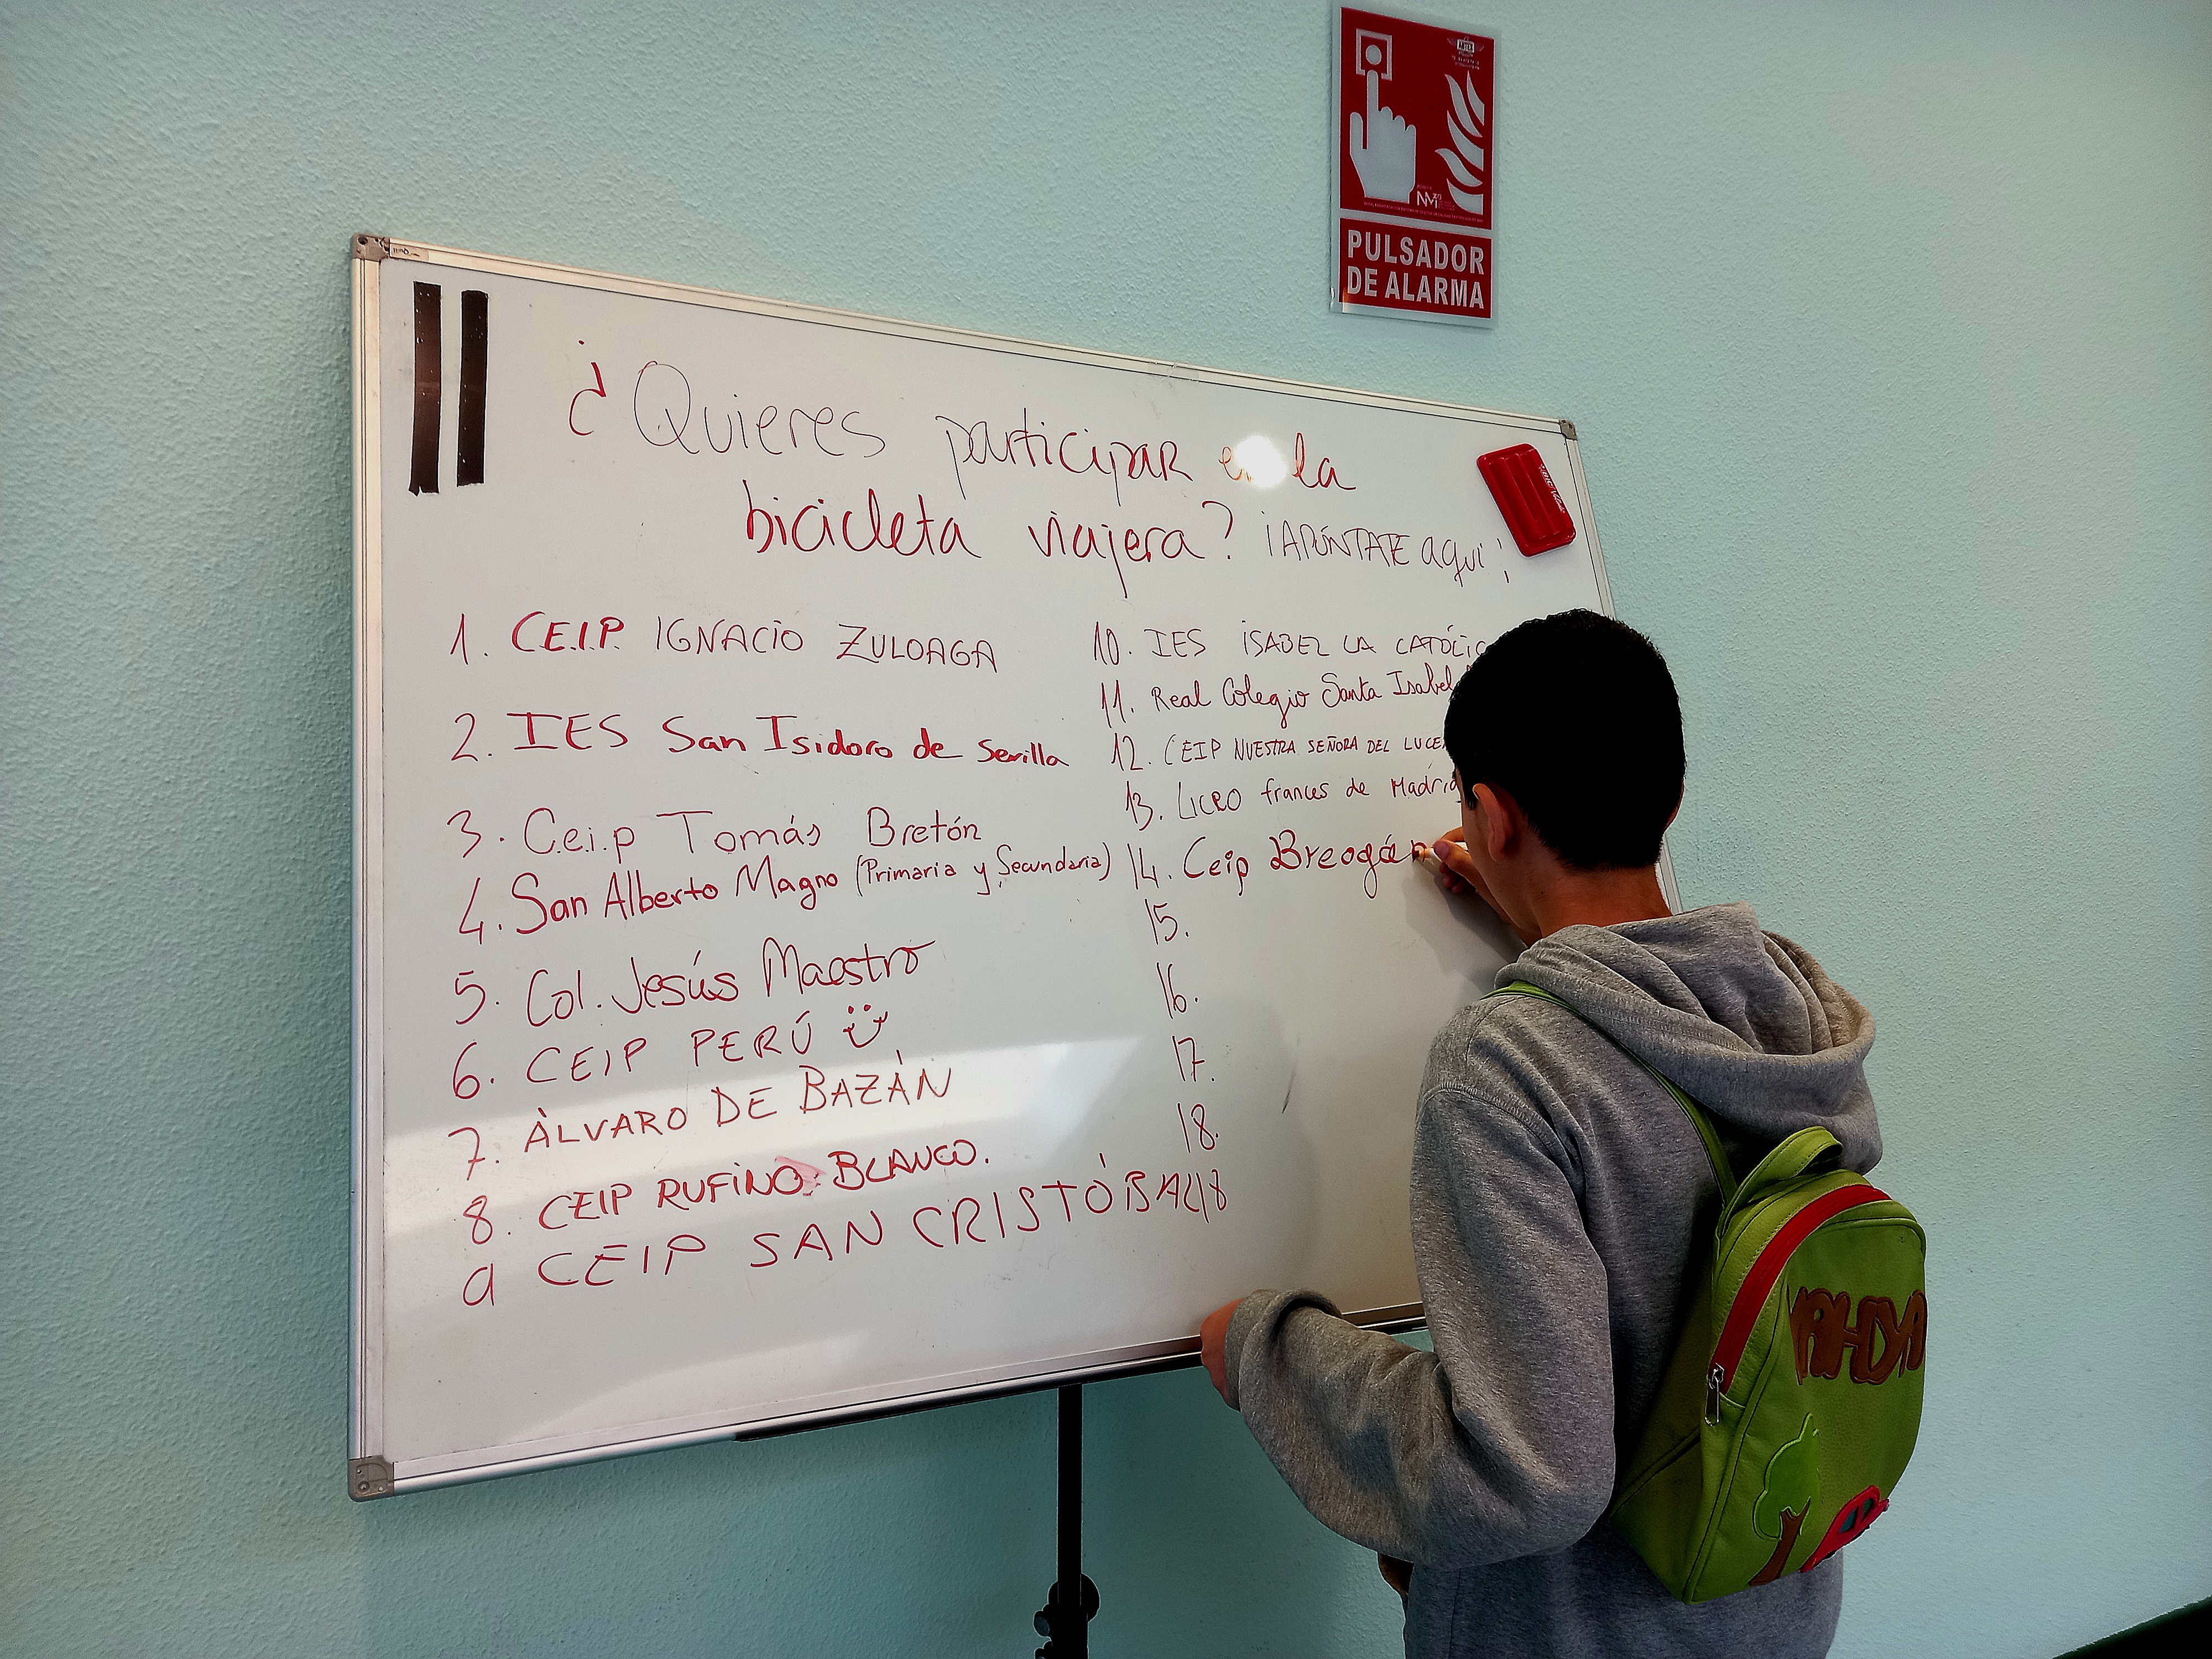 ¿Quieres participar en la
bicicleta viajera? ¡APÚNTATE aquí!
1. C.E.I.P. IGNACIO ZULOAGA
2. IES San Isidoro de Sevilla
3. C.e.i.p Tomás Bretón
4. San Alberto Magno (Primaria y Secundaria)
5. Col. Jesús Maestro
6. CEIP PERÚ
7. ÀLVARO DE BAZÁN
8. CEIP RUFINO BLANCO.
9 CEIP SAN CRISTÓBAL
10. IES ISABEL LA CATÓLIC
11. Real Colegio Santa Isabel
12. CEIP NUESTRA SEÑORA DEL LUCE
13. LICEO frances de Madrid
14. Ceip Breogán
15.
16.
17.
18.
18
PULSADOR
DE ALARMA
YAHYA